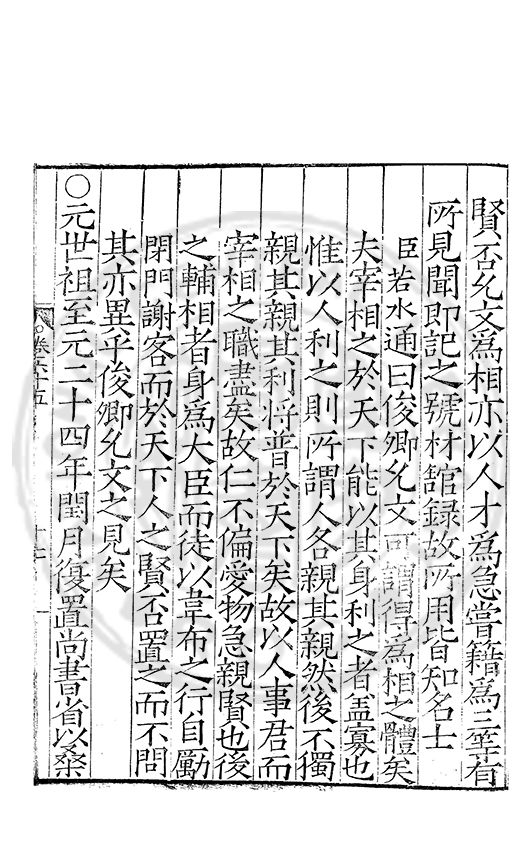 賢否允文爲相亦以人才爲急嘗籍爲三等有
所見聞即記之號材館録故所用皆知名士
臣若水通曰俊卿允文可謂得爲相之體矣
夫宰相之於天下能以其身利之者盖寡也
惟以人利之則所謂人各親其親然後不獨
親其親其利將普於天下矣故以人事君而
宰相之職盡矣故仁不偏愛物急親賢也後
之輔相者身爲大臣而徒以韋布之行自勵
閉門謝客而於天下人之賢否置之而不問
其亦異乎俊卿允文之見矣
○元世祖至元二十四年閏月復置尚書省以桑
卷六十五